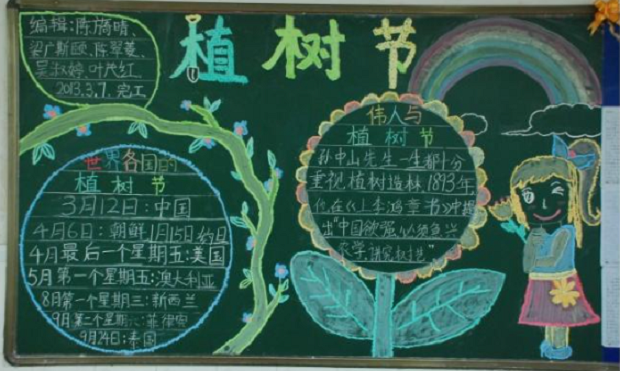 编辑:陈旖晴、
梁广斯颐、陈翠蔓、
吴淑婷、叶茂红、
2013.3.7. 完工
植树节
世界各国的
植树节
3月12日:中国
4月6日:朝鲜 1月15日:约旦
4月最后一个星期五:美国
5月第一个星期五:澳大利亚
8月第一个星期三:新西兰
9月第二个星期:菲律宾
9月24日:泰国
伟人与
植树节
孙中山先生一生都十分
重视植树造林,1893年
他在《上李鸿章书》中提
出“中国欲强,必须急兴
农学,讲究树艺”